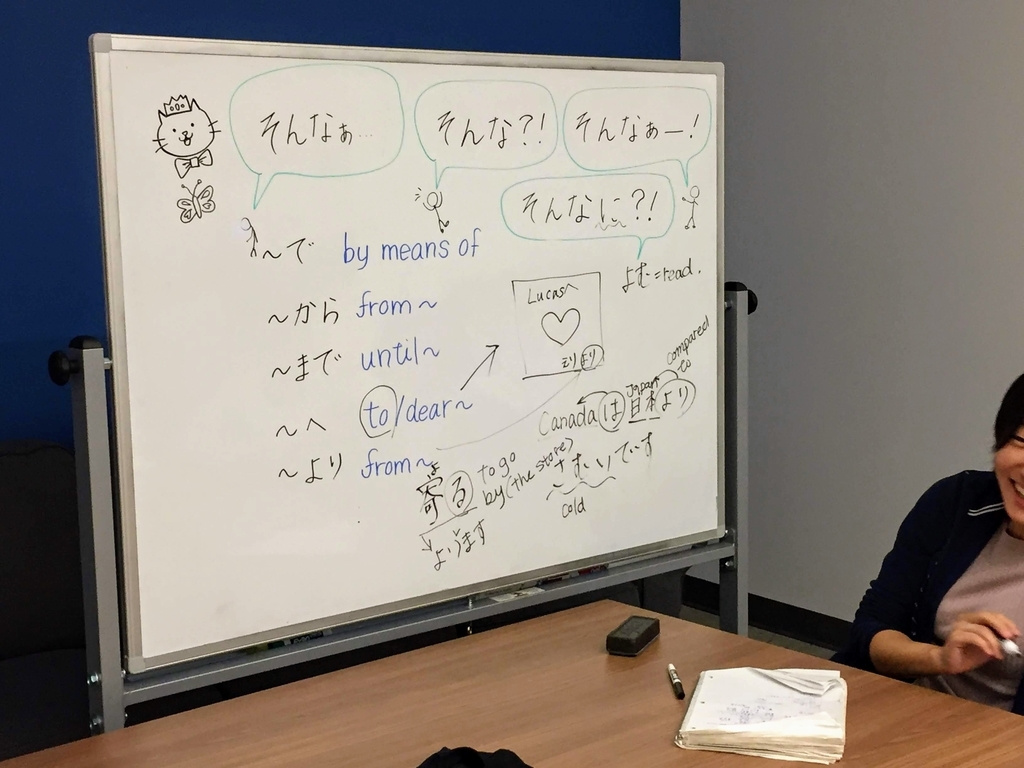 そんなぁ…
そんな?!
そんなぁー!
そんなに?!
～で by means of
よむ=read.
～から from～
Lucasへ
より
～まで until～
～へ to/dear～
compared to
Japan
Canadaは日本より
さむいです
cold
～より from～
よ
寄る to go by (the store)
よります